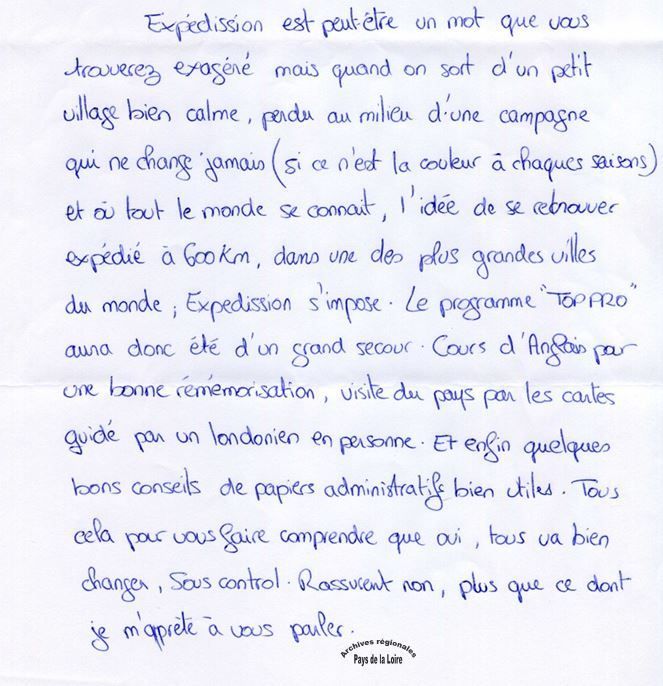 Expédission est peut-être un mot que vous
trouverez exagéré mais quand on sort d'un petit
village bien calme, perdu au milieu d'une campagne
qui ne change jamais (si ce n'est la couleur à chaques saisons)
et où tout le monde se connait, l'idée de se retrouver
expédié à 600 Km, dans une des plus grandes villes
du monde ; Expedission s'impose. Le programme "TOP PRO"
aura donc été d'un grand secour. Cours d'Anglais par
une bonne rémémorisation, visite du pays par les cartes
guidé par un londonien en personne. Et enfin quelques
bons conseils de papiers administratifs bien utiles. Tous
cela pour vous faire comprendre que oui, tous va bien
changer, sous control. Rassurent non, plus que ce dont
je m'apprête à vous parler.
Archives régionales
Pays de la Loire